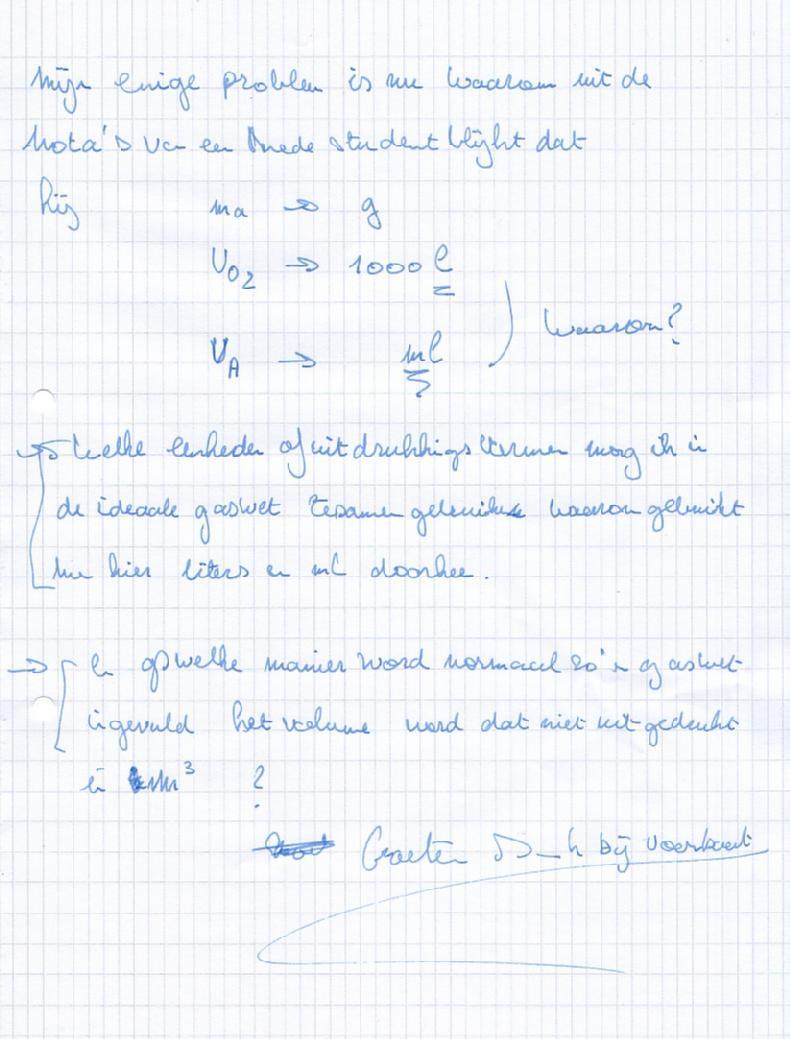 Mijn enige problem is nu waarom uit de
Nota's van een Mede student blijkt dat
hij ma → g
VO2 → 1000 l
waarom?
VA → ml
→ Welke eenheden of uitdrukkings termen mag ik in
de ideaale gaswet tesamen gebruiken waarom gebruikt
men hier liters en ml doorhee.
→ En op welke manier word normaal zo'n gaswet
ingevuld het volume word dat niet uitgedrukt
in m³ ?
Groeten D_k bij voorbaat